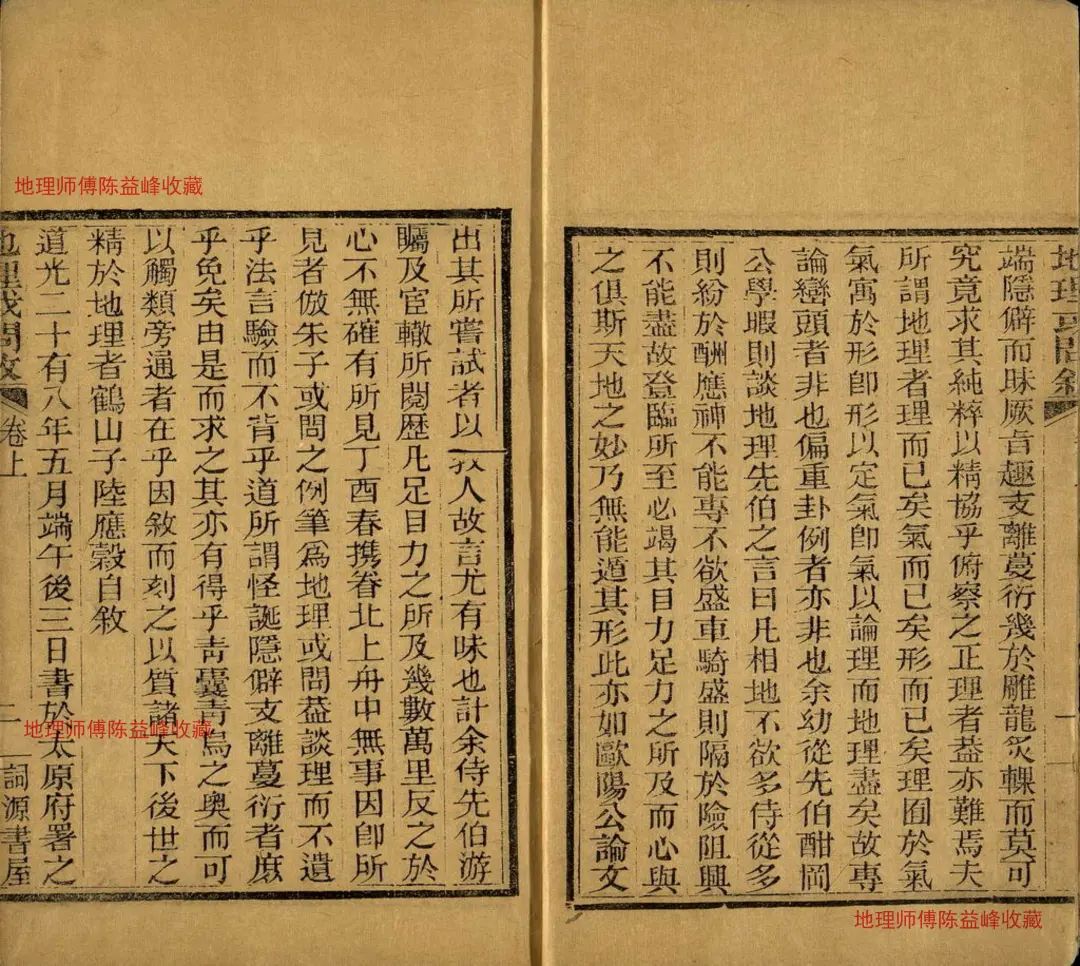 地理或問敘
端隱僻而昧厥旨趣支離蔓衍幾於雕龍炙輠而莫可
究竟求其純粹以精協乎俯察之正理者葢亦難焉夫
所謂地理者理而已矣氣而已矣形而已矣理囿於氣
氣寓於形卽形以定氣卽氣以論理而地理盡矣故專
論巒頭者非也偏重卦例者亦非也余幼從先伯酣岡
公學暇則談地理先伯之言曰凡相地不欲多侍從多
則紛於酬應神不能專不欲盛車騎盛則隔於險阻興
不能盡故登臨所至必竭其目力足力之所及而心與
之俱斯天地之妙乃無能遁其形此亦如歐陽公論文
出其所嘗試者以教人故言尤有味也計余侍先伯游
矚及宦轍所閱歷凡足目力之所及幾數萬里反之於
心不無確有所見丁酉春携眷北上舟中無事因卽所
見者倣朱子或問之例筆爲地理或問葢談理而不遺
乎法言驗而不背乎道所謂怪誕隱僻支離蔓衍者庶
乎免矣由是而求之其亦有得乎靑囊靑烏之奥而可
以觸類旁通者在乎因敘而刻之以質諸天下後世之
精於地理者鶴山子陸應穀自敘
道光二十有八年五月端午後三日書於太原府署之
卷上
二
詞源書屋
地理师傅陈益峰收藏
地理师傅陈益峰收藏
地理师傅陈益峰收藏